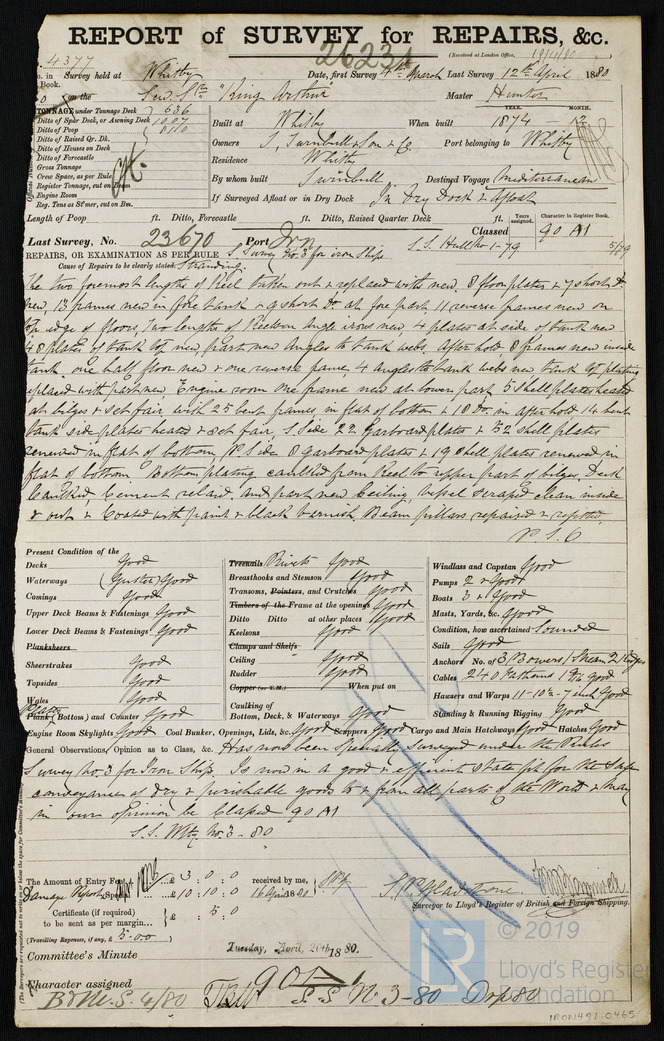 REPORT of SURVEY for REPAIRS, &c.
26231
(Received at London Office, 19/4/80
4377
No. in Survey held at Whitby Date, first Survey 4th March Last Survey 12th April 1880
Book.
on the Screw Str "King Arthur" Master Hunter
TONNAGE under Tonnage Deck 636
Ditto of Spar Deck, or Awning Deck
Ditto of Poop
Ditto of Raised Qr. Dk.
Ditto of Houses on Deck
Ditto of Forecastle
Gross Tonnage
Crew Space, as per Rule
Register Tonnage, cut on Beam
Engine Room
Reg. Tons as St'mer, cut on Bm.
YEAR. MONTH.
Built at Whitby When built 1874 - 12
Owners T. Turnbull & Son & Co. Port belonging to Whitby
Residence Whitby
By whom built Turnbull Destined Voyage Mediterranean
If Surveyed Afloat or in Dry Dock In Dry Dock & Afloat
Length of Poop ft. Ditto, Forecastle ft. Ditto, Raised Quarter Deck ft.
Years assigned. Character in Register Book.
Last Survey, No. 23670 Port Irn Classed 90 A1
REPAIRS, OR EXAMINATION AS PER RULE S. Survey No. 3 for iron Ships S.S. Hull No 1-79 5/79
Cause of Repairs to be clearly stated: Stranding.
The two foremost lengths of Keel taken out & replaced with new. 8 floor plates & 7 short do
new, 13 frames new in fore tank & 9 short do at fore part. 11 reverse frames new on
top edge of floors, two lengths of Keelson Angle irons new, 4 plates at side of tank new
48 plates of tank top new, part new Angles to tank webs. After hold, 8 frames new inside
tank. one half floor new & one reverse frame, 4 angles to tank webs new tank top plating
replaced with part new. Engine room one frame new at lower part. 5 shell plates heated
at bilges & set fair with 25 bent frames in flat of bottom & 18 do. in after hold 14 bent
tank side plates heated & set fair, S. Side 22 garboard plates & 52 shell plates
renewed in flat of bottom, P. Side 8 garboard plates & 19 shell plates renewed in
flat of bottom. Bottom plating caulked from Keel to upper part of bilges. Deck
Caulked, Cement relaid, and part new Ceiling, vessel scraped clean inside
& out & Coated with paint & black varnish. Beam pillars repaired & refitted.
Present Condition of the
Decks Good
Waterways (Gutter) Good
Comings Good
Upper Deck Beams & Fastenings Good
Lower Deck Beams & Fastenings Good
Planksheers
Sheerstrakes Good
Topsides Good
Wales
Plank (Bottom) and Counter Good
Treenails Rivets Good
Breasthooks and Stemson Good
Transoms, Pointers, and Crutches Good
Timbers of the Frame at the openings Good
Ditto Ditto at other places Good
Keelsons Good
Clamps and Shelfs
Ceiling Good
Rudder Good
Copper (or Y.M.) When put on
Caulking of
Bottom, Deck, & Waterways Good
Windlass and Capstan Good
Pumps 2 & Good
Boats 3 & Good
Masts, Yards, &c. Good
Condition, how ascertained Sounded
Sails Good
Anchors No. of 3 Bowers 1 Stream 2 Kedges
Cables 240 Fathoms Good
Hawsers and Warps 11-10½-7 inch Good
Standing & Running Rigging Good
Engine Room Skylights Good Coal Bunker, Openings, Lids, &c. Good Scuppers Good Cargo and Main Hatchways Good Hatches Good
General Observations, Opinion as to Class, &c. Has now been Specially Surveyed under the Rules
Survey No 3 for Iron Ships. Is now in a good & efficient state fit for the safe
conveyance of dry & perishable goods to & from all parts of the World & may
in our opinion be Classed 90 A1
S.S. Wtby No. 3 - 80
The Amount of Entry Fee £ 3 : 0 : 0 received by me,
Damage Report £ 10 : 10 : 0 16 April 1880
Certificate (if required) £ : 5 : 0
to be sent as per margin...
(Travelling Expenses, if any, £ 5-0-0 )
S. P. Gladstone
Surveyor to Lloyd's Register of British and Foreign Shipping.
Committee's Minute Tuesday, April, 20th 1880.
Character assigned 90 A1
B&M.S. 4/80 S.S. No. 3-80 Drp 80
© 2019
LR
Lloyd's Register
Foundation
IRON491-0465